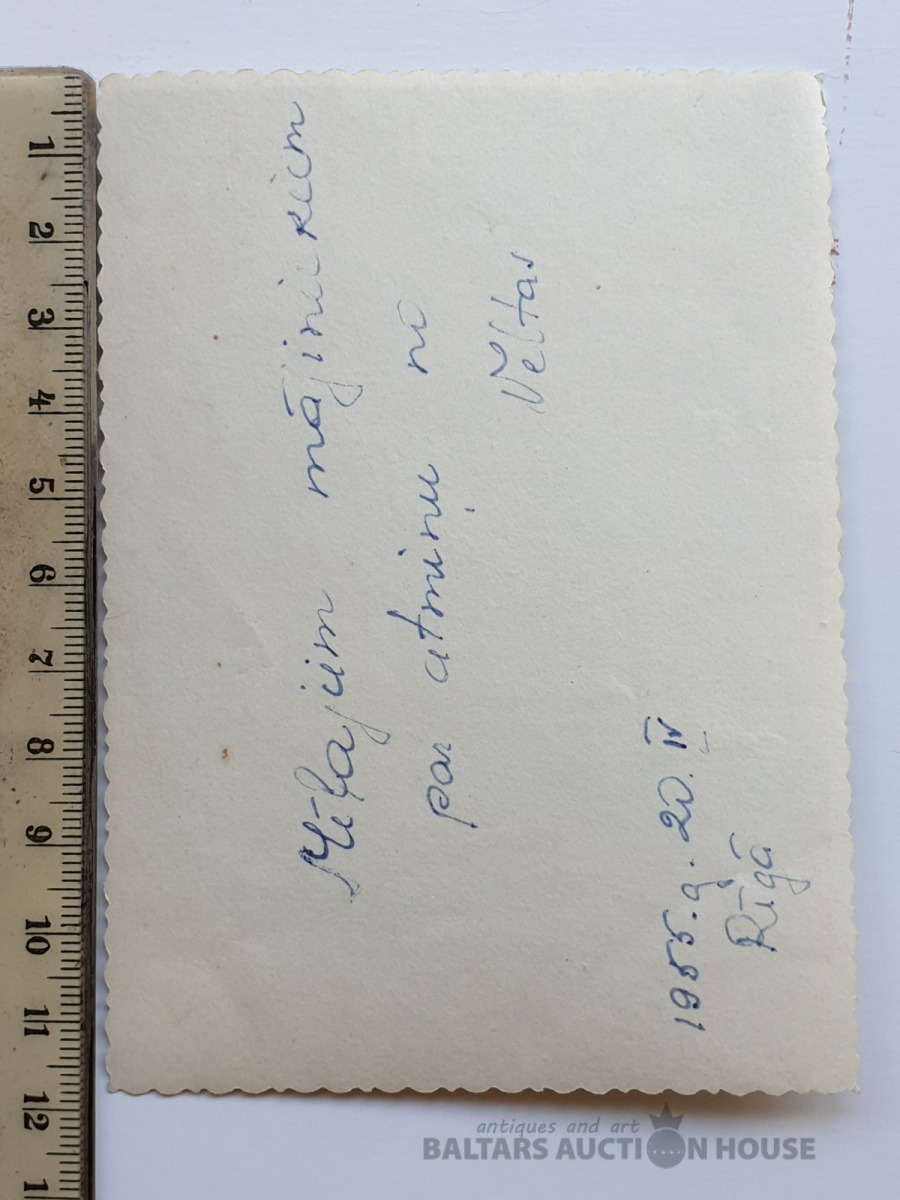 Mīļajiem mājiniekiem
par atmiņu nō
Veltas
1955. g. 20. IV
Rīgā
1
2
3
4
5
6
7
8
9
10
11
12
1
antiques and art
BALTARS AUCTION HOUSE